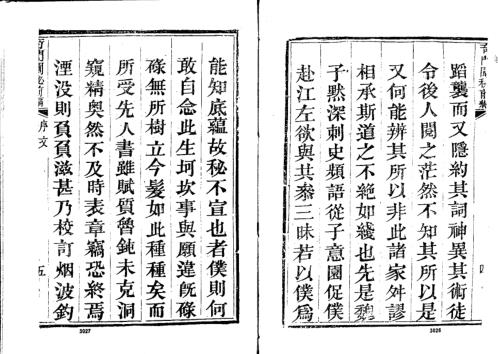 蹈襲而又隱約其詞神異其術徒
令後人閱之茫然不知其所以是
又何能辨其所以非此諸家舛謬
相承斯道之不絕如綫也先是魏
子黙深刺史類語從子意園促僕
赴江左欲與其叅三昧若以僕爲
3026
能知底蘊故秘不宣也者僕則何
敢自念此生坎坷事與願違旣碌
碌無所樹立今髮如此種種矣而
所受先人書雖賦質魯鈍未克洞
窺精奧然不及時表章竊恐終焉
湮没則負負滋甚乃校訂烟波釣
序文
五
3027